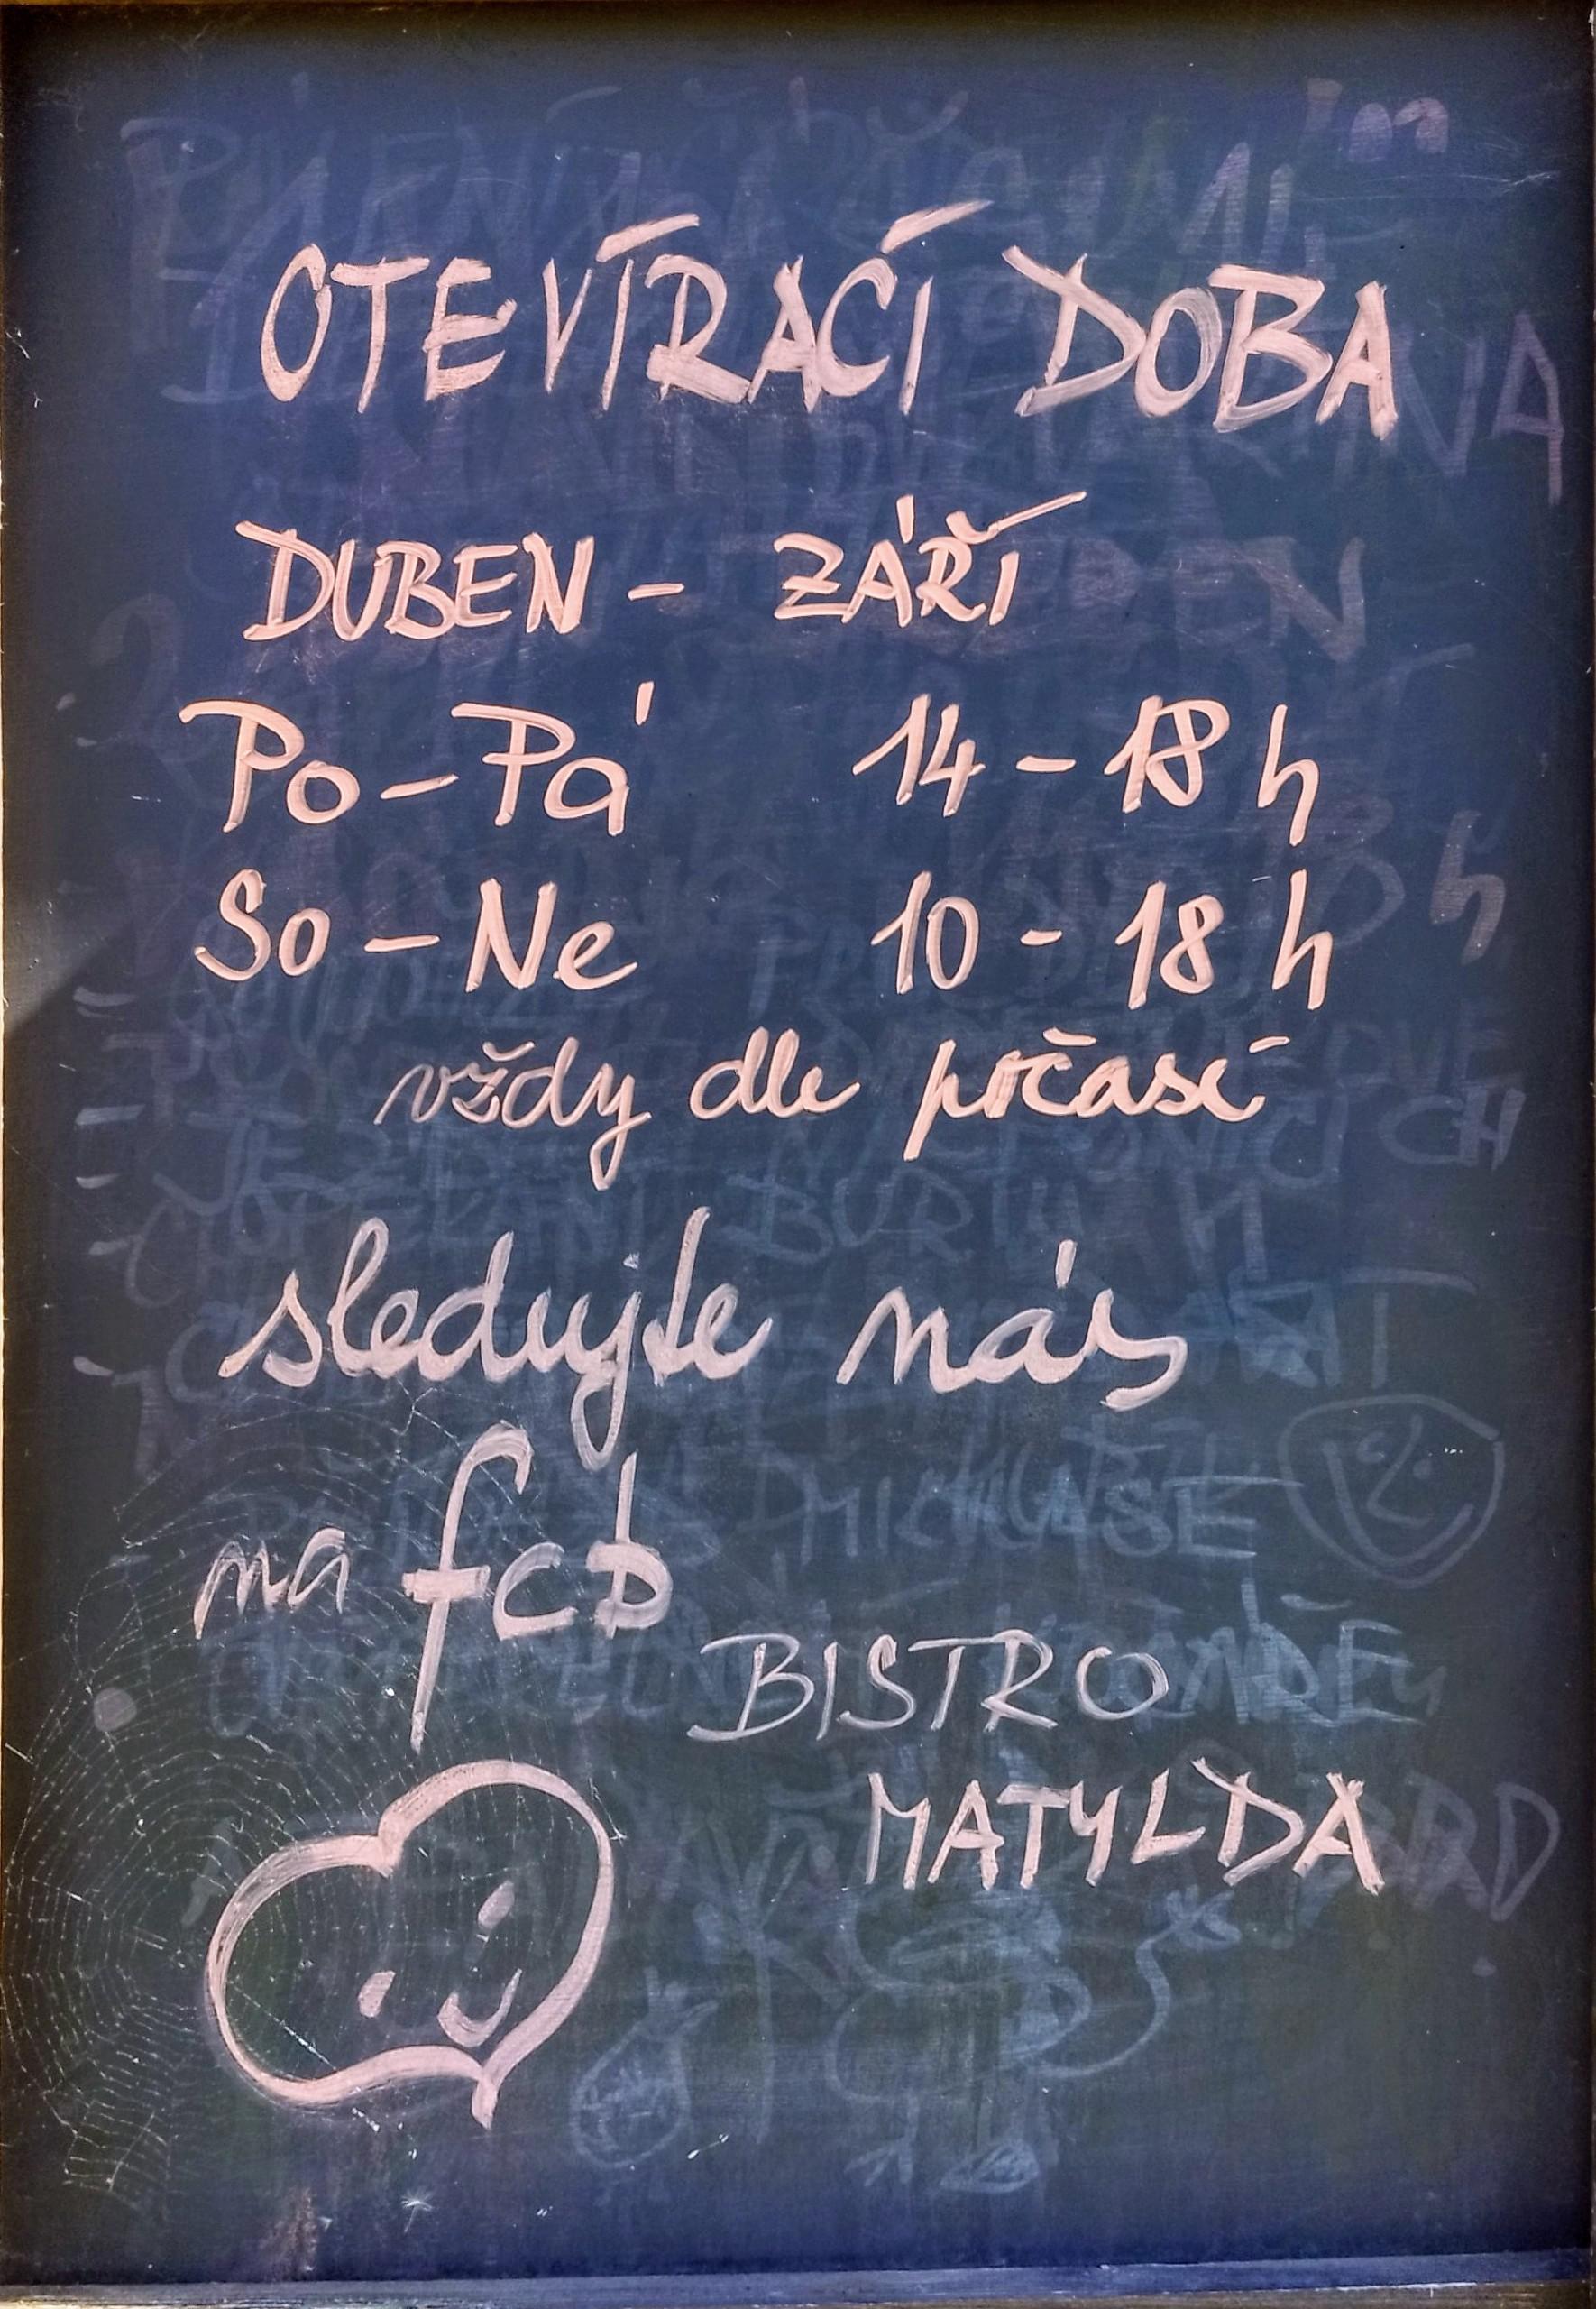 OTEVÍRACÍ DOBA
DUBEN - ZÁŘÍ
Po - Pá 14 - 18 h
So - Ne 10 - 18 h
vždy dle počasí
sledujte nás
na fcb
BISTRO
MATYLDA